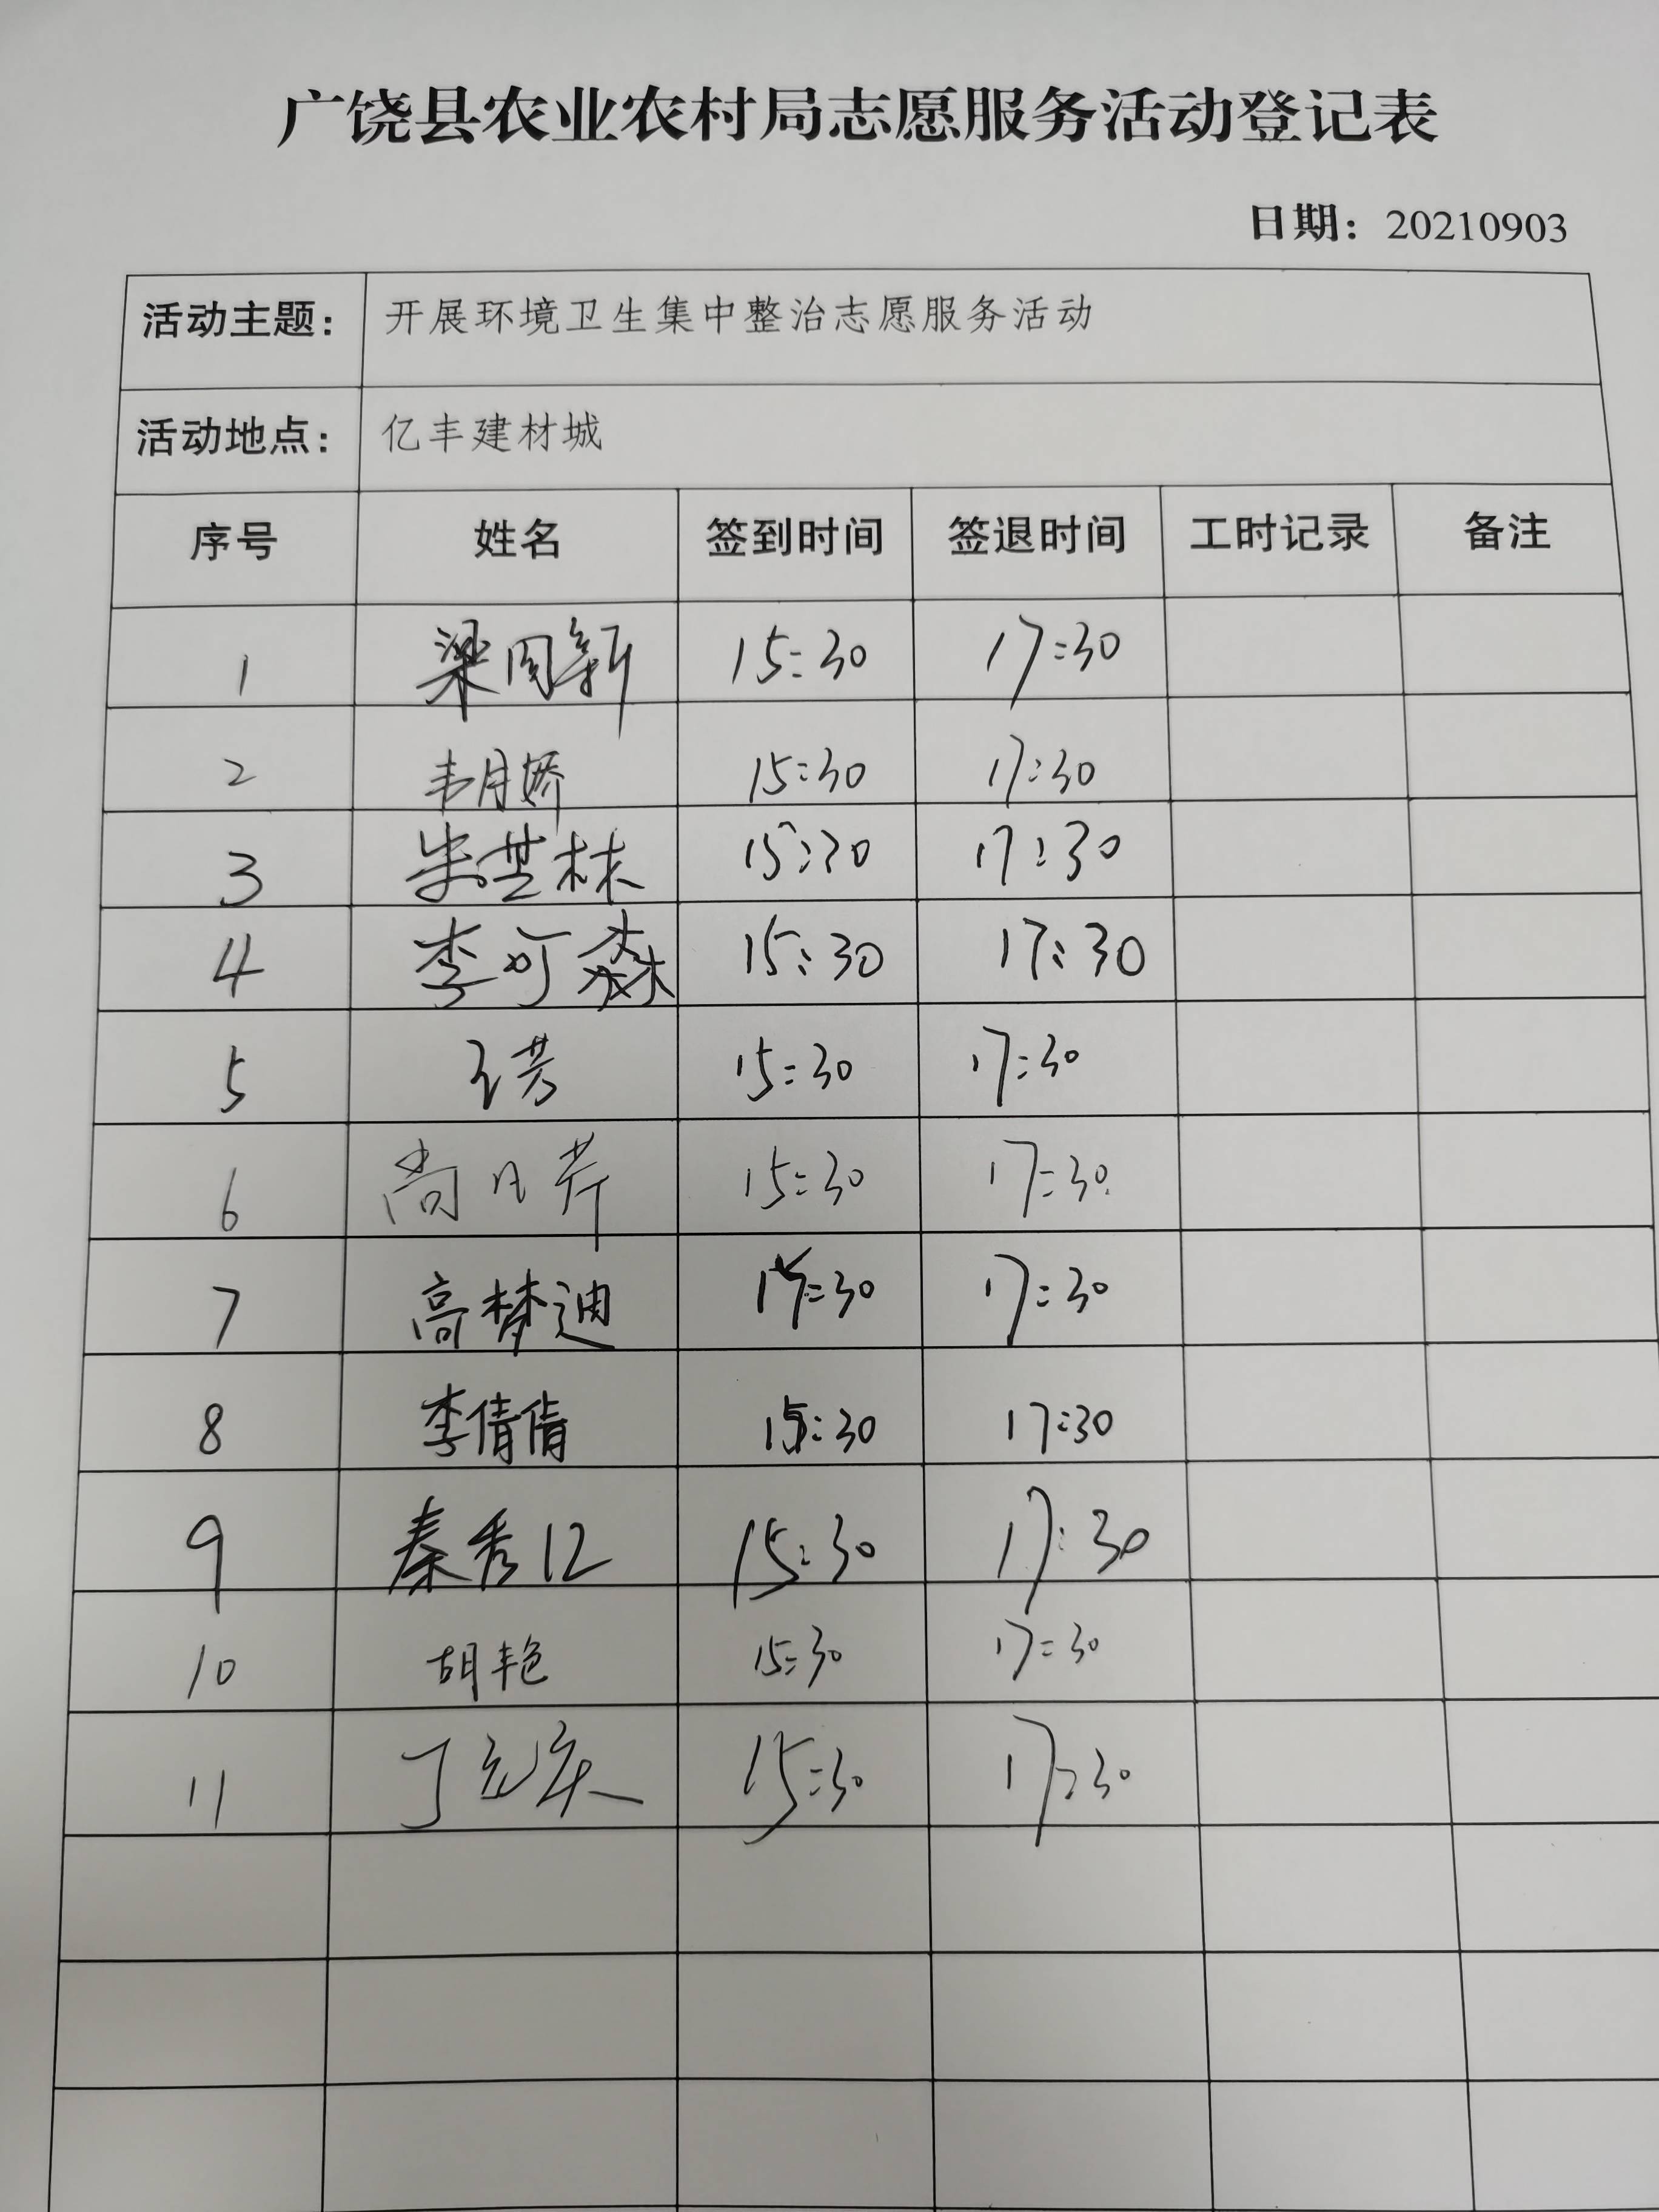 广饶县农业农村局志愿服务活动登记表
日期：20210903
活动主题： 开展环境卫生集中整治志愿服务活动
活动地点： 亿丰建材城
序号 姓名 签到时间 签退时间 工时记录 备注
1 梁同新 15:30 17:30
2 韦月娇 15:30 17:30
3 15:30 17:30
4 李可淼 15:30 17:30
5 王芳 15:30 17:30
6 尚凡芹 15:30 17:30
7 高梦迪 15:30 17:30
8 李倩倩 15:30 17:30
9 秦秀江 15:30 17:30
10 胡艳 15:30 17:30
11 丁 15:30 17:30